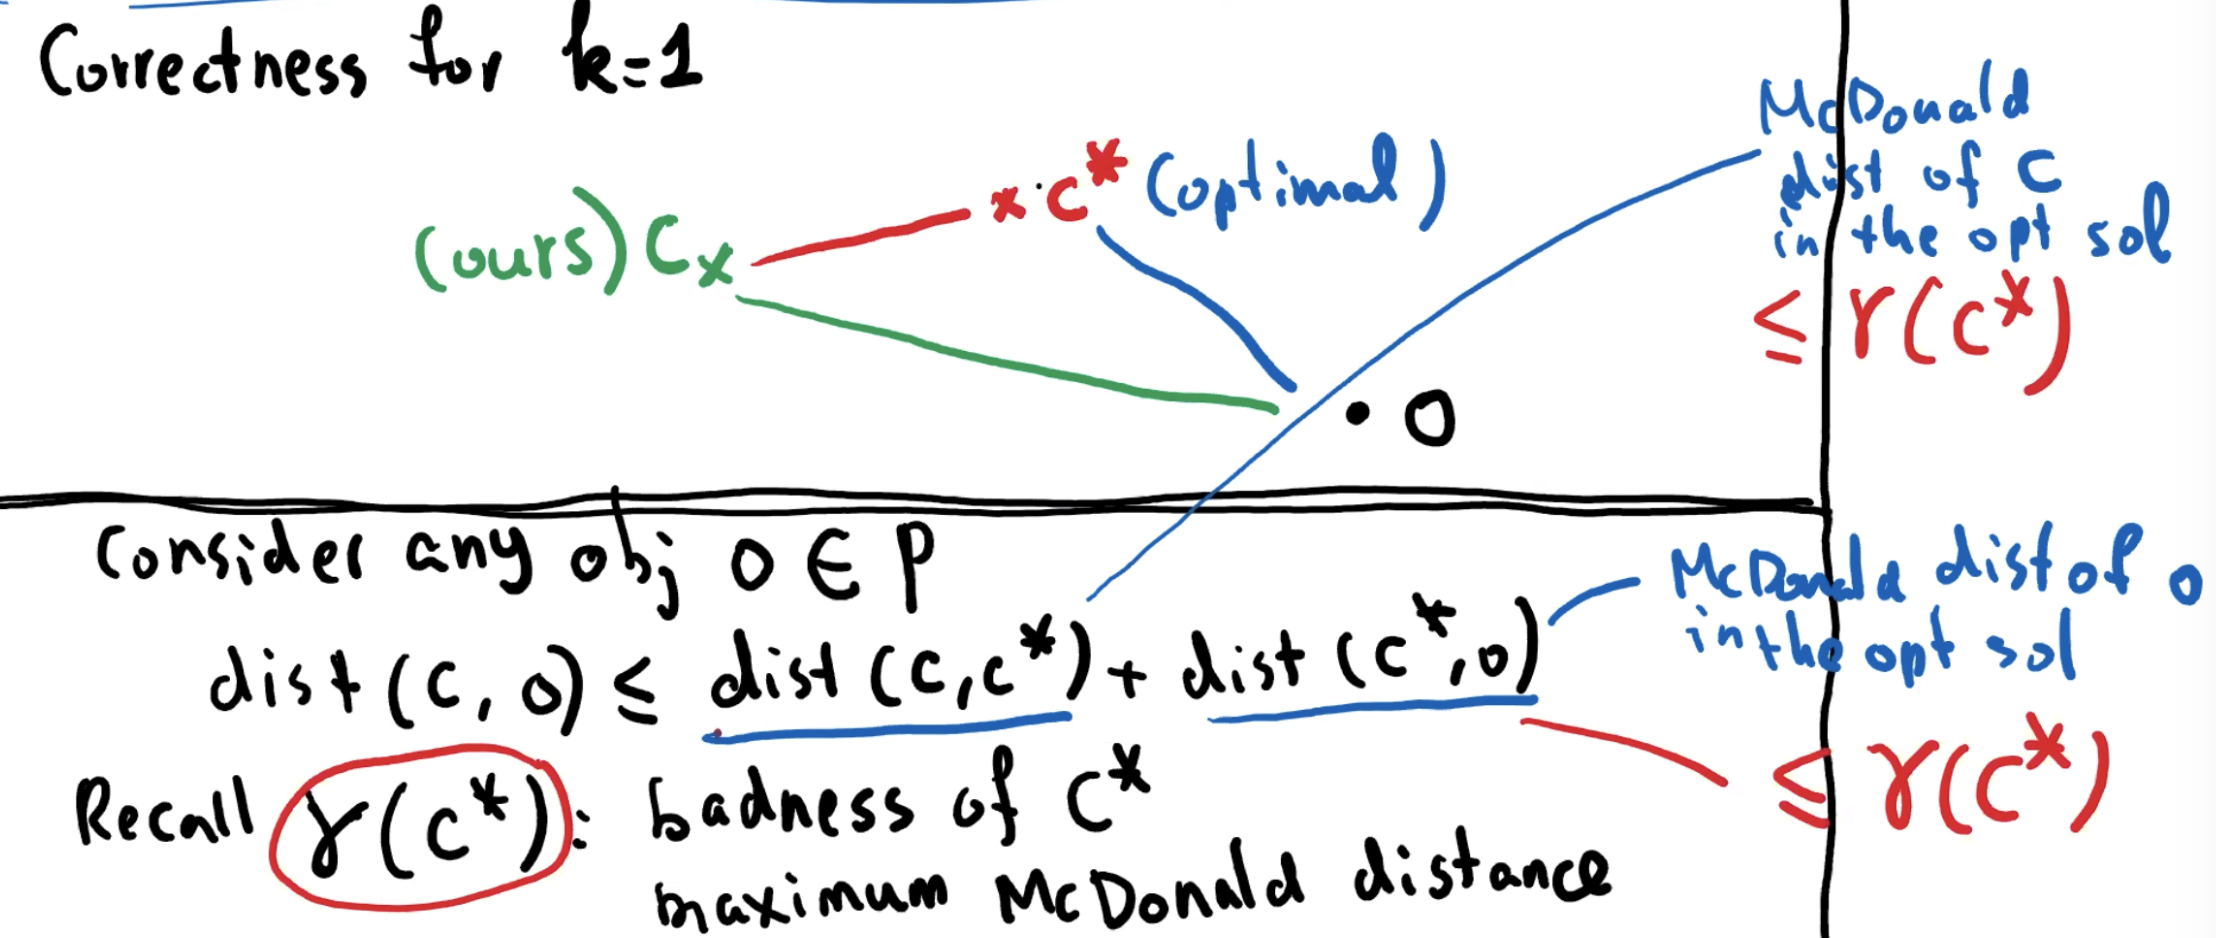 Correctness for k=1
(ours) C x
x · C* (optimal)
McDonald
dist of C
in the opt sol
≤ r(C*)
• O
Consider any obj O ∈ P
dist (C, O) ≤ dist (C, C*) + dist (C*, O)
McDonald dist of O
in the opt sol
≤ r(C*)
Recall r(C*): badness of C*
maximum McDonald distance